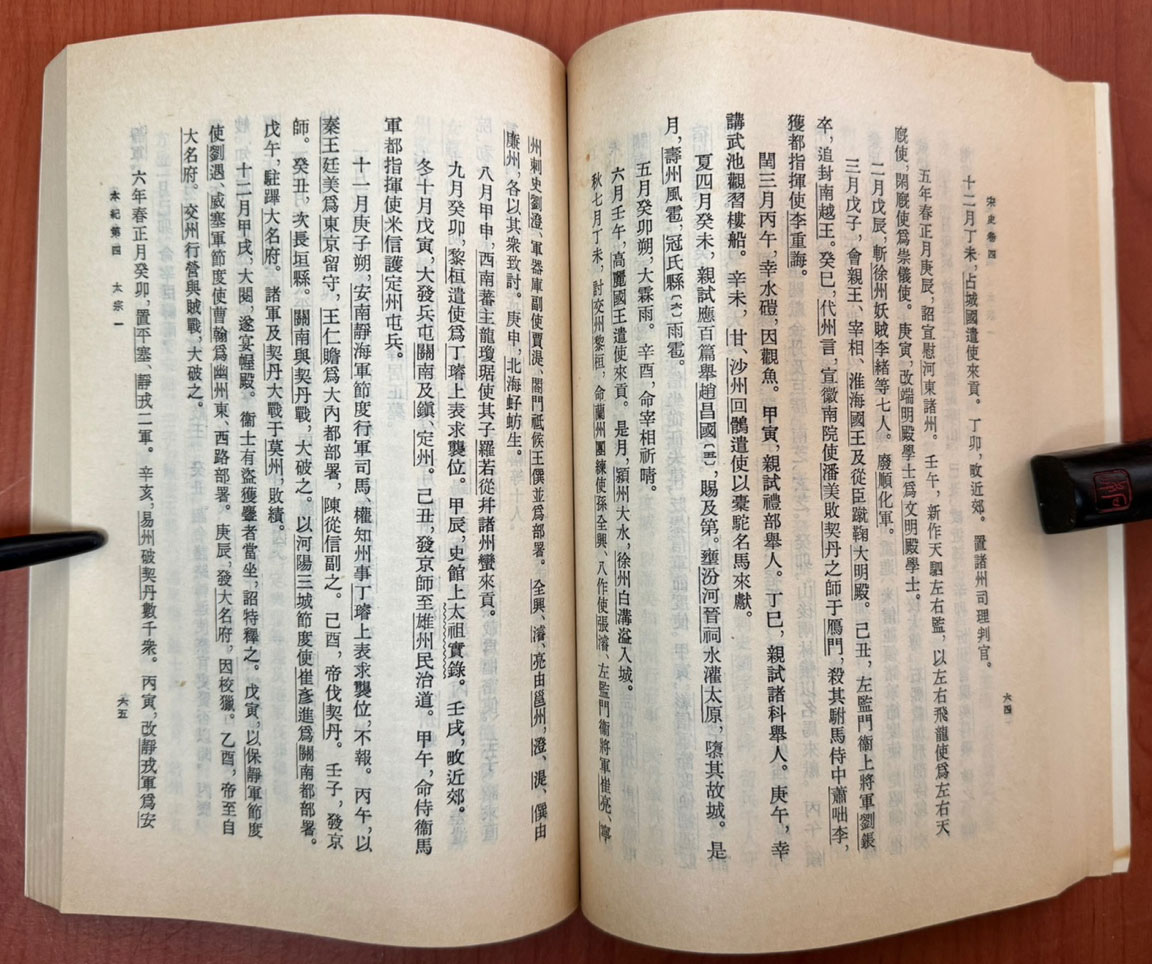 宋史卷四
十二月丁未，占城國遣使來貢。丁卯，畋近郊。置諸州司理判官。
五年春正月庚辰，詔宣慰河東諸州。壬午，新作天駟左右監，以左右飛龍使爲左右天
廐使，閑廐使爲崇儀使。庚寅，改端明殿學士爲文明殿學士。
二月戊辰，斬徐州妖賊李緒等七人。廢順化軍。
三月戊子，會親王、宰相、淮海國王及從臣蹴鞠大明殿。己丑，左監門衞上將軍劉鋹
卒，追封南越王。癸巳，代州言，宣徽南院使潘美敗契丹之師于鴈門，殺其駙馬侍中蕭咄李，
獲都指揮使李重誨。
閏三月丙午，幸水磑，因觀魚。甲寅，親試禮部舉人。丁巳，親試諸科舉人。庚午，幸
講武池觀習樓船。辛未，甘、沙州回鶻遣使以橐駝名馬來獻。
夏四月癸未，親試應百篇舉趙昌國〔五〕，賜及第。壅汾河晉祠水灌太原，隳其故城。是
月，壽州風雹，冠氏縣〔六〕雨雹。
五月癸卯朔，大霖雨。辛酉，命宰相祈晴。
六月壬午，高麗國王遣使來貢。是月，潁州大水，徐州白溝溢入城。
秋七月丁未，討交州黎桓，命蘭州團練使孫全興、八作使張濬、左監門衞將軍崔亮、寧
六四
州刺史劉澄、軍器庫副使賈湜、閤門祗候王僎並爲部署。全興、濬、亮由邕州，澄、湜、僎由
廉州，各以其衆致討。庚申，北海虸蚄生。
八月甲申，西南蕃主龍瓊琚使其子羅若從幷諸州蠻來貢。
九月癸卯，黎桓遣使爲丁璿上表求襲位。甲辰，史館上太祖實錄。壬戌，畋近郊。
冬十月戊寅，大發兵屯關南及鎮、定州。己丑，發京師至雄州民治道。甲午，命侍衞馬
軍都指揮使米信護定州屯兵。
十一月庚子朔，安南靜海軍節度行軍司馬、權知州事丁璿上表求襲位，不報。丙午，以
秦王廷美爲東京留守，王仁贍爲大內都部署，陳從信副之。己酉，帝伐契丹。壬子，發京
師。癸丑，次長垣縣。關南與契丹戰，大破之。以河陽三城節度使崔彥進爲關南都部署。
戊午，駐蹕大名府。諸軍及契丹大戰于莫州，敗績。
十二月甲戌，大閱，遂宴幄殿。衞士有盜獲麞者當坐，詔特釋之。戊寅，以保靜軍節度
使劉遇、威塞軍節度使曹翰爲幽州東、西路部署。庚辰，發大名府，因校獵。乙酉，帝至自
大名府。交州行營與賊戰，大破之。
六年春正月癸卯，置平塞、靜戎二軍。辛亥，易州破契丹數千衆。丙寅，改靜戎軍爲安
本紀第四　太宗一
六五